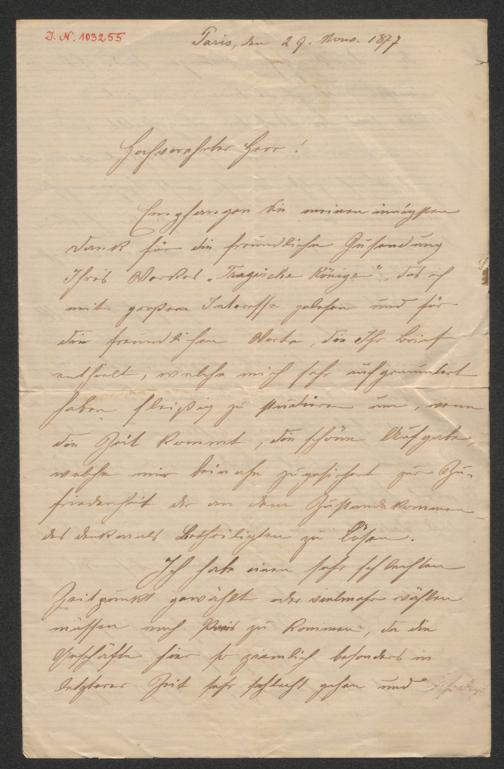 J. N. 103255
Paris, den 29. Nov. 1877
Hochverehrter Herr!
Empfangen Sie meinen innigsten
Dank für die freundliche Zusendung
Ihres Werkes „Tragische Könige", das ich
mit großem Interesse gelesen und für
die freundlichen Worte, die Ihr Brief
enthielt, welche mich sehr aufgemuntert
haben fleißig zu studieren um, wenn
die Zeit kommt, die schöne Aufgabe,
welche mir beinahe zugesichert zur Zu-
friedenheit der an dem Zustandekommen
des Denkmals Betheiligten zu lösen.
Ich habe einen sehr schlechten
Zeitpunkt gewählt oder vielmehr wählen
müssen nach Paris zu kommen, da die
Geschäfte hier so ziemlich besonders in
letzterer Zeit sehr schlecht gehen und